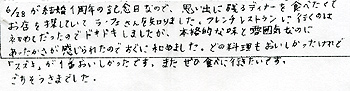 6/28が結婚1周年の記念日なので、思い出に残るディナーを食べたくて
お店を探していて ラ・フェさんを知りました。フレンチレストランに行くのは
初めてだったのでドキドキしましたが、本格的な味と雰囲気なのに
あったかさが感じられたのですぐになじめました。どの料理もおいしかったけれど
「スズキ」が1番おいしかったです。また ぜひ食べに行きたいです。
ごちそうさまでした。